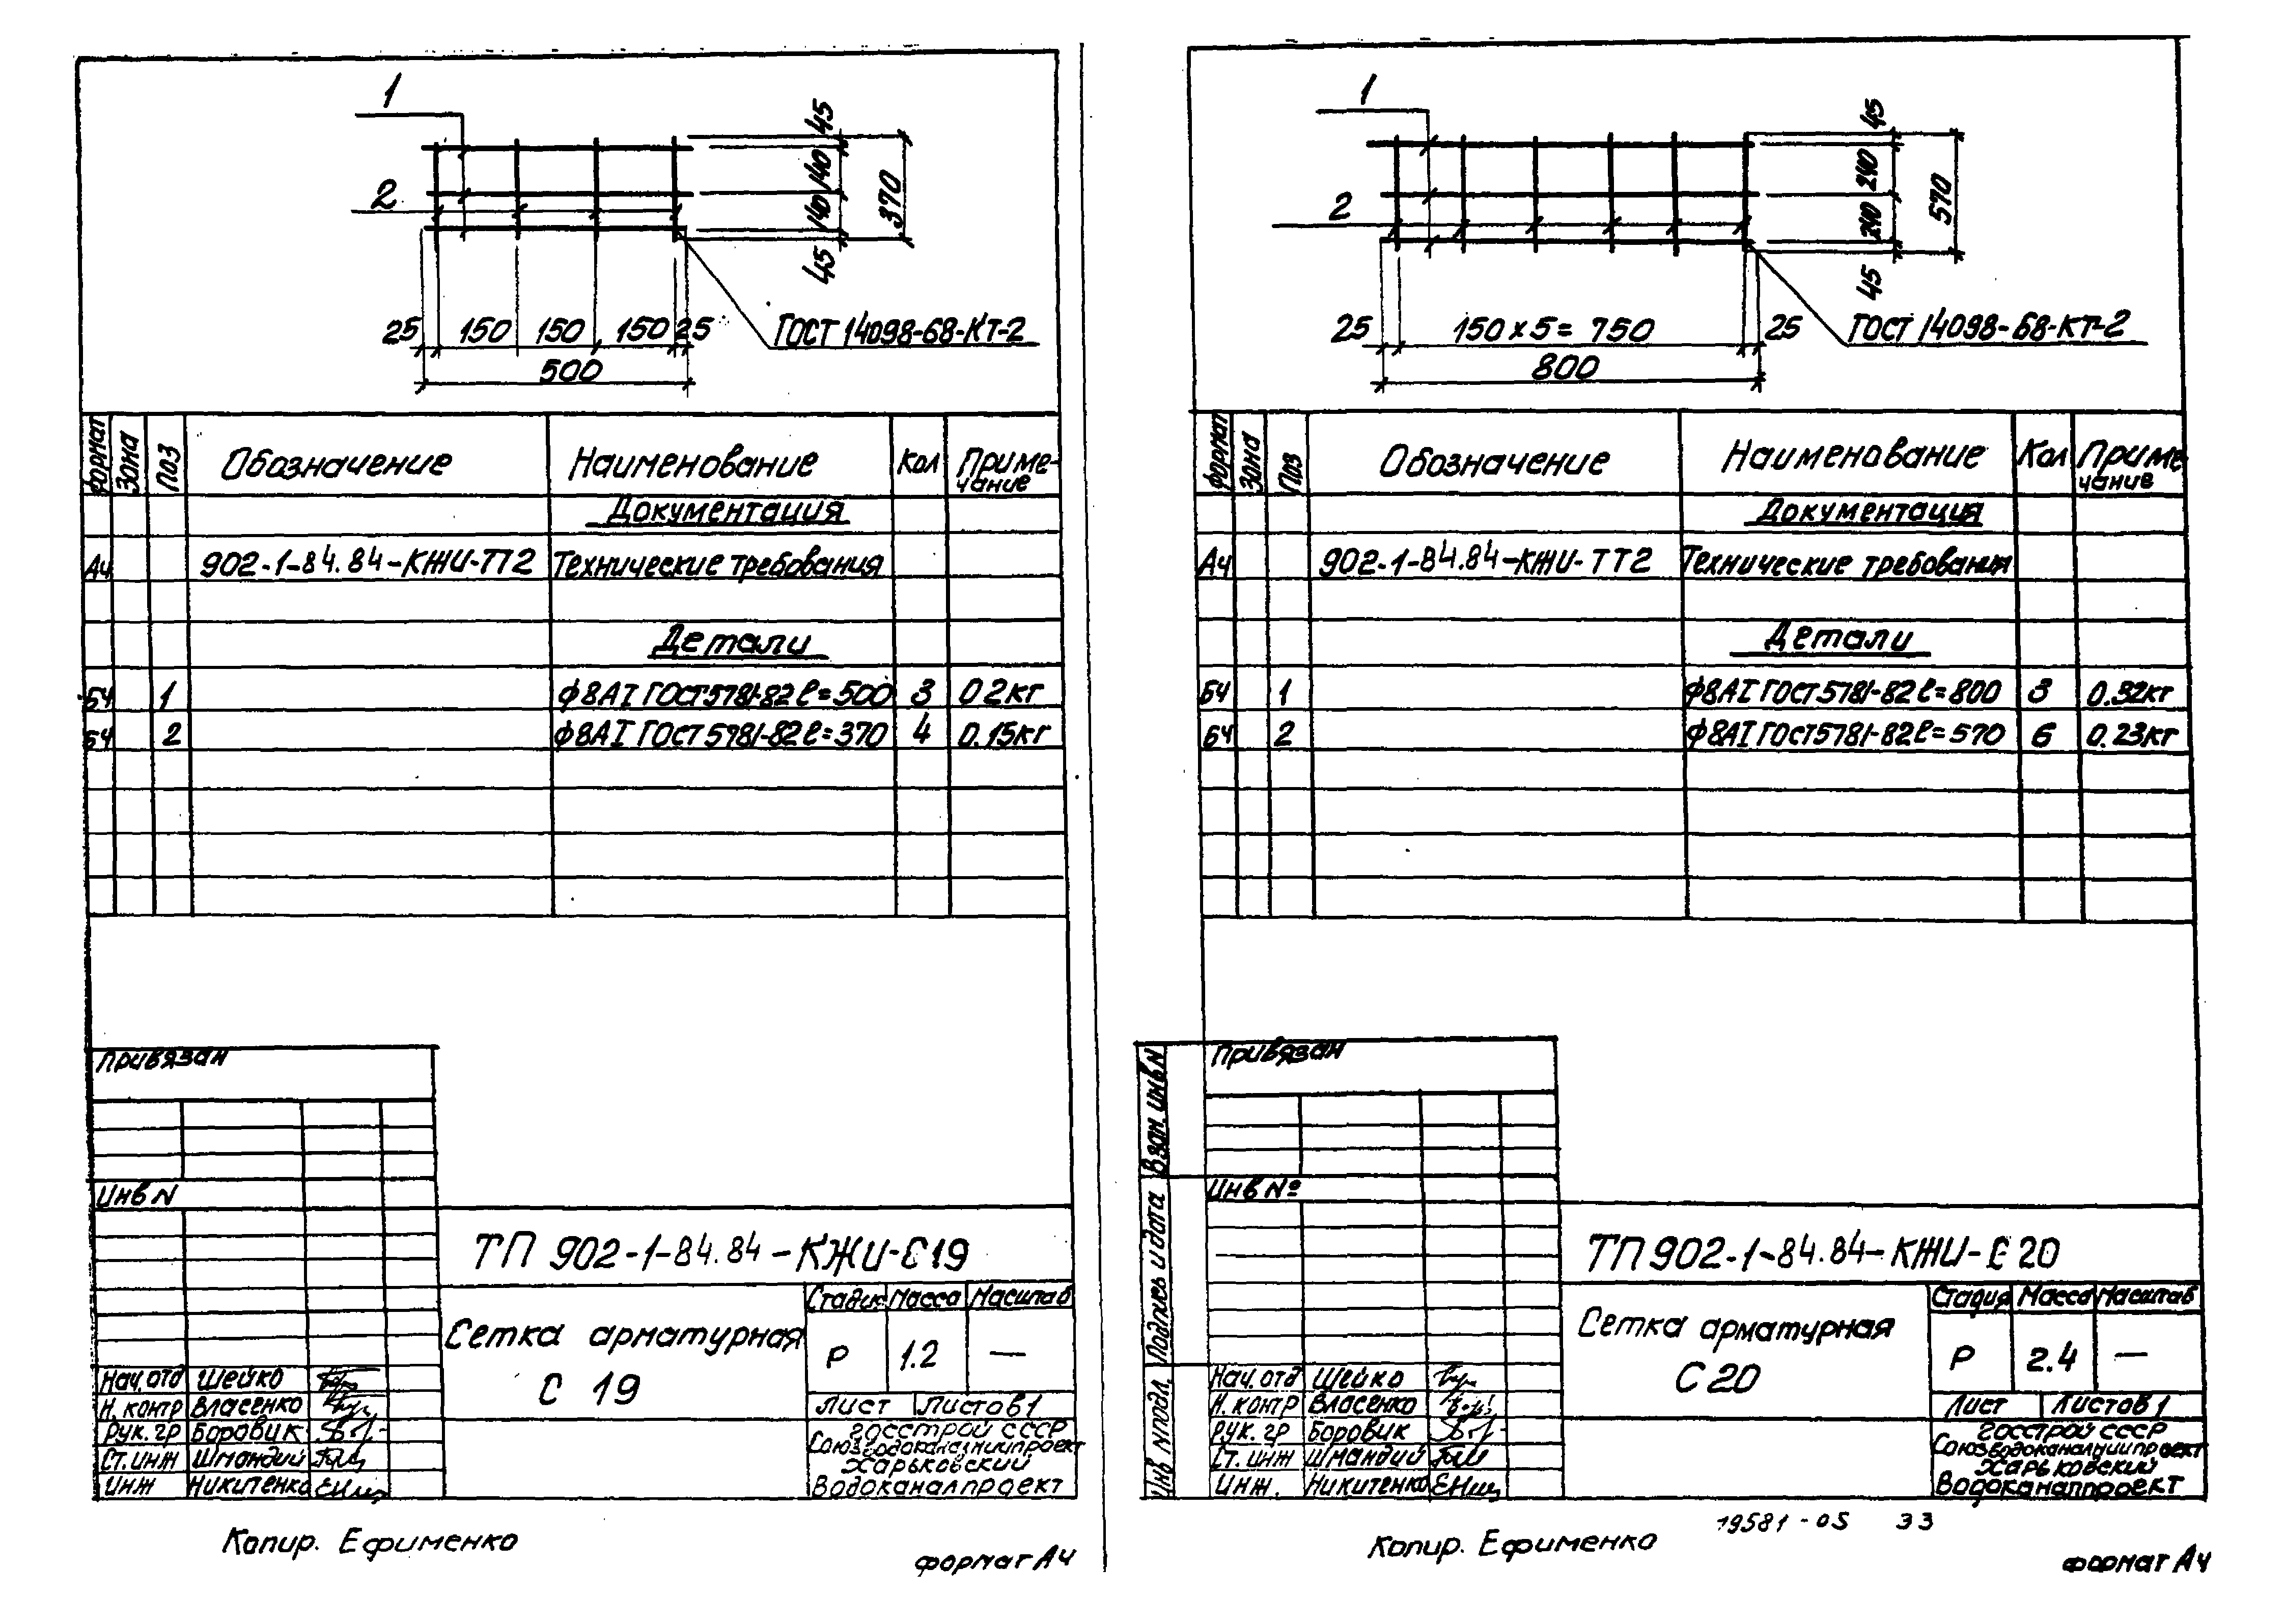 1
2
45
140
140
45
370
25 150 150 150 25
500
ГОСТ 14098-68-КТ-2
Формат Зона Поз Обозначение Наименование Кол Приме-
чание
Документация
А4 902-1-84.84-КЖИ-ТТ2 Технические требования
Детали
БЧ 1 ф8АI ГОСТ 5781-82 ℓ=500 3 0.2кг
БЧ 2 ф8АI ГОСТ 5781-82 ℓ=370 4 0.15кг
Привязан
Инв N
ТП 902-1-84.84-КЖИ-С19
Сетка арматурная
С 19
Стадия Масса Масштаб
Р 1.2 —
Лист Листов 1
Госстрой СССР
Союзводоканалниипроект
Харьковский
Водоканалпроект
Нач. отд Шейко
Н. контр Власенко
Рук. гр Боровик
Ст. инж Шмандий
Инж Никитенко
Копир. Ефименко
формат А4
1
2
45
240
240
45
570
25 150 х 5 = 750 25
800
ГОСТ 14098-68-КТ-2
Формат Зона Поз Обозначение Наименование Кол Приме
чание
Документация
А4 902-1-84.84-КЖИ-ТТ2 Технические требования
Детали
БЧ 1 ф8АI ГОСТ 5781-82 ℓ=800 3 0.32кг
БЧ 2 ф8АI ГОСТ 5781-82 ℓ=570 6 0.23кг
Взам. инв N
Подпись и дата
Инв N подл.
Привязан
Инв №
ТП 902-1-84.84-КЖИ-С20
Сетка арматурная
С 20
Стадия Масса Масштаб
Р 2.4 —
Лист Листов 1
Госстрой СССР
Союзводоканалниипроект
Харьковский
Водоканалпроект
Нач. отд Шейко
Н. контр Власенко
Рук. гр Боровик
Ст. инж Шмандий
Инж. Никитенко
19581-05 33
Копир. Ефименко
формат А4